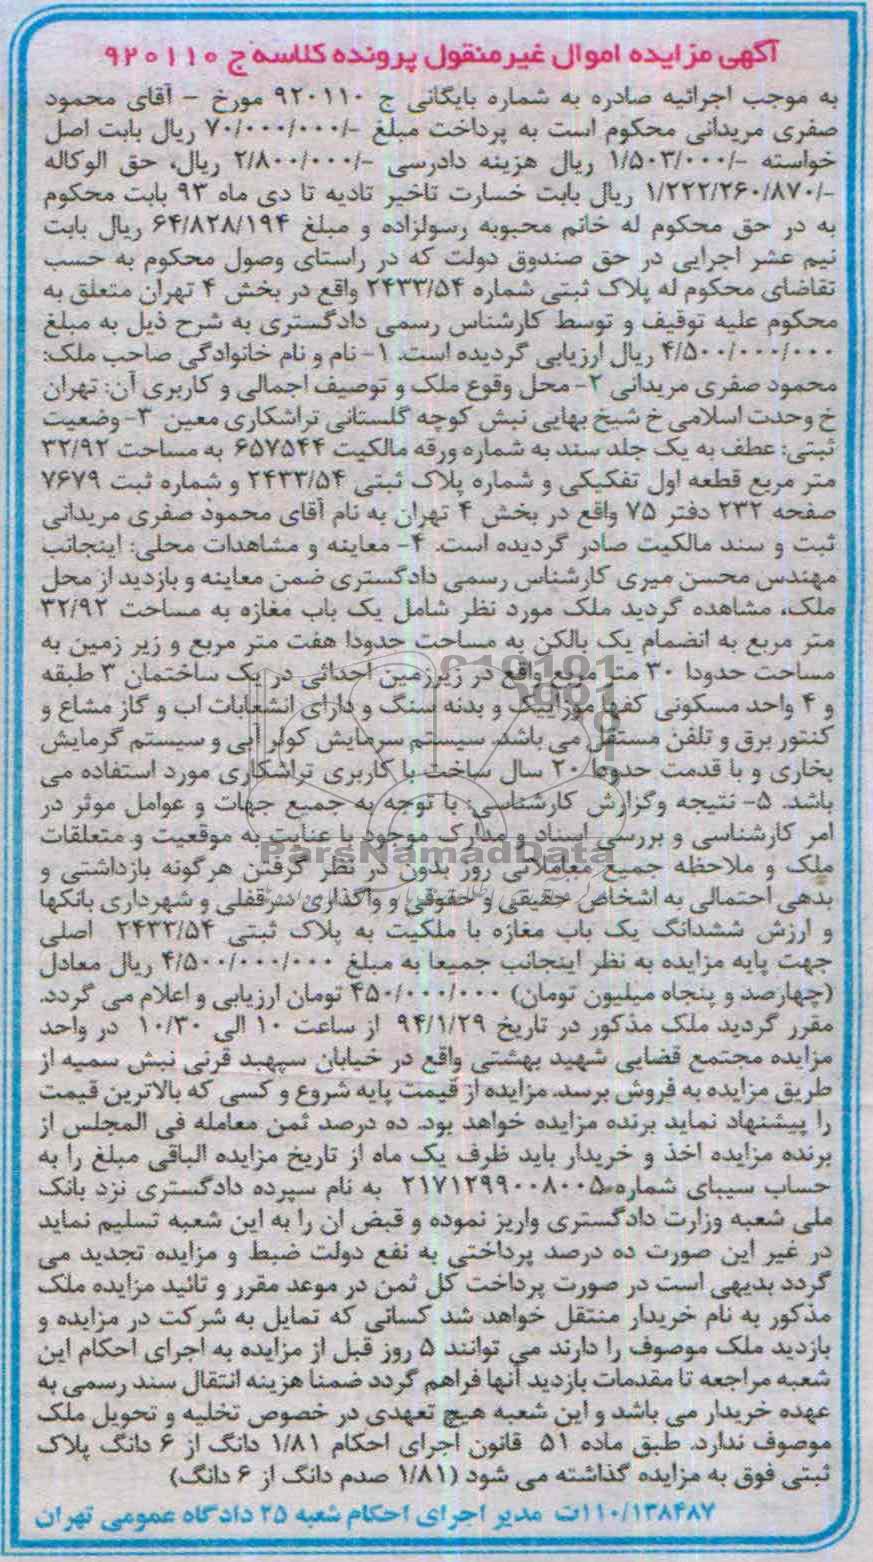 آگهی مزایده اموال غیرمنقول پرونده کلاسه ج ۹۲۰۱۱۰
به موجب اجرائیه صادره به شماره بایگانی ج ۹۲۰۱۱۰ مورخ - آقای محمود
صفری مریدانی محکوم است به پرداخت مبلغ -/۷۰/۰۰۰/۰۰۰ ریال بابت اصل
خواسته -/۱/۵۰۳/۰۰۰ ریال هزینه دادرسی -/۲/۸۰۰/۰۰۰ ریال، حق الوکاله
-/۱/۲۲۲/۲۶۰/۸۷۰ ریال بابت خسارت تاخیر تادیه تا دی ماه ۹۳ بابت محکوم
به در حق محکوم له خانم محبوبه رسولزاده و مبلغ ۶۴/۸۲۸/۱۹۴ ریال بابت
نیم عشر اجرایی در حق صندوق دولت که در راستای وصول محکوم به حسب
تقاضای محکوم له پلاک ثبتی شماره ۲۴۳۳/۵۴ واقع در بخش ۴ تهران متعلق به
محکوم علیه توقیف و توسط کارشناس رسمی دادگستری به شرح ذیل به مبلغ
۴/۵۰۰/۰۰۰/۰۰۰ ریال ارزیابی گردیده است. ۱- نام و نام خانوادگی صاحب ملک:
محمود صفری مریدانی ۲- محل وقوع ملک و توصیف اجمالی و کاربری آن: تهران
خ وحدت اسلامی خ شیخ بهایی نبش کوچه گلستانی تراشکاری معین ۳- وضعیت
ثبتی: عطف به یک جلد سند به شماره ورقه مالکیت ۶۵۷۵۴۴ به مساحت ۳۲/۹۲
متر مربع قطعه اول تفکیکی و شماره پلاک ثبتی ۲۴۳۳/۵۴ و شماره ثبت ۷۶۷۹
صفحه ۲۳۲ دفتر ۷۵ واقع در بخش ۴ تهران به نام آقای محمود صفری مریدانی
ثبت و سند مالکیت صادر گردیده است. ۴- معاینه و مشاهدات محلی: اینجانب
مهندس محسن میری کارشناس رسمی دادگستری ضمن معاینه و بازدید از محل
ملک، مشاهده گردید ملک مورد نظر شامل یک باب مغازه به مساحت ۳۲/۹۲
متر مربع به انضمام یک بالکن به مساحت حدودا هفت متر مربع و زیر زمین به
مساحت حدودا ۳۰ متر مربع واقع در زیرزمین احداثی در یک ساختمان ۳ طبقه
و ۴ واحد مسکونی کفها موزاییک و بدنه سنگ و دارای انشعابات اب و گاز مشاع و
کنتور برق و تلفن مستقل می باشد. سیستم سرمایش کولر آبی و سیستم گرمایش
بخاری و با قدمت حدودا ۲۰ سال ساخت با کاربری تراشکاری مورد استفاده می
باشد. ۵- نتیجه وگزارش کارشناسی: با توجه به جمیع جهات و عوامل موثر در
امر کارشناسی و بررسی اسناد و مدارک موجود با عنایت به موقعیت و متعلقات
ملک و ملاحظه جمیع معاملاتی روز بدون در نظر گرفتن هرگونه بازداشتی و
بدهی احتمالی به اشخاص حقیقی و حقوقی و واگذاری سرقفلی و شهرداری بانکها
و ارزش ششدانگ یک باب مغازه با ملکیت به پلاک ثبتی ۲۴۳۳/۵۴ اصلی
جهت پایه مزایده به نظر اینجانب جمیعا به مبلغ ۴/۵۰۰/۰۰۰/۰۰۰ ریال معادل
(چهارصد و پنجاه میلیون تومان) ۴۵۰/۰۰۰/۰۰۰ تومان ارزیابی و اعلام می گردد.
مقرر گردید ملک مذکور در تاریخ ۹۴/۱/۲۹ از ساعت ۱۰ الی ۱۰/۳۰ در واحد
مزایده مجتمع قضایی شهید بهشتی واقع در خیابان سپهبد قرنی نبش سمیه از
طریق مزایده به فروش برسد. مزایده از قیمت پایه شروع و کسی که بالاترین قیمت
را پیشنهاد نماید برنده مزایده خواهد بود. ده درصد ثمن معامله فی المجلس از
برنده مزایده اخذ و خریدار باید ظرف یک ماه از تاریخ مزایده الباقی مبلغ را به
حساب سیبای شماره ۲۱۷۱۲۹۹۰۰۸۰۰۵ به نام سپرده دادگستری نزد بانک
ملی شعبه وزارت دادگستری واریز نموده و قبض ان را به این شعبه تسلیم نماید
در غیر این صورت ده درصد پرداختی به نفع دولت ضبط و مزایده تجدید می
گردد بدیهی است در صورت پرداخت کل ثمن در موعد مقرر و تائید مزایده ملک
مذکور به نام خریدار منتقل خواهد شد کسانی که تمایل به شرکت در مزایده و
بازدید ملک موصوف را دارند می توانند ۵ روز قبل از مزایده به اجرای احکام این
شعبه مراجعه تا مقدمات بازدید آنها فراهم گردد ضمنا هزینه انتقال سند رسمی به
عهده خریدار می باشد و این شعبه هیچ تعهدی در خصوص تخلیه و تحویل ملک
موصوف ندارد. طبق ماده ۵۱ قانون اجرای احکام ۱/۸۱ دانگ از ۶ دانگ پلاک
ثبتی فوق به مزایده گذاشته می شود (۱/۸۱ صدم دانگ از ۶ دانگ)
۱۱۰/۱۳۸۴۸۷ت مدیر اجرای احکام شعبه ۲۵ دادگاه عمومی تهران
ParsNamadData